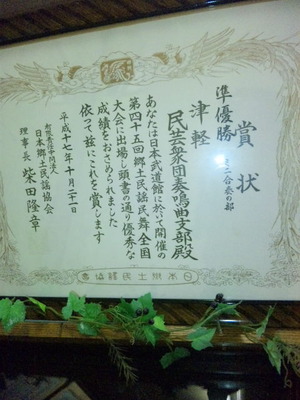 賞状
準優勝 ミニ合奏の部
津軽
民芸衆団奏鳴曲支部殿
あなたは日本武道館に於て開催の
第四十五回郷土民謡民舞全国
大会に出場し頭書の通り優秀な
成績をおさめられました
依って茲にこれを賞します
平成十七年十月二十一日
日本郷土民謡協会
理事長 柴田隆章
日本郷土民謡協会